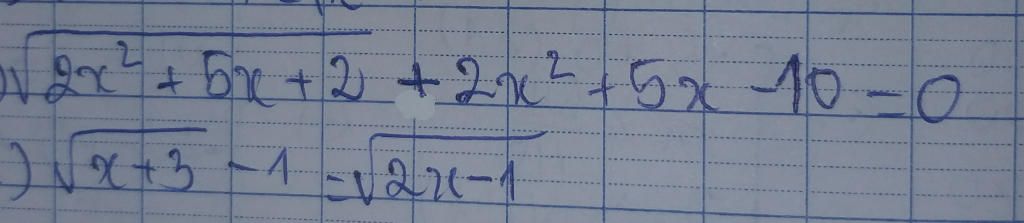 )√(2x² + 5x + 2) + 2x² + 5x - 10 = 0
)√(x+3) - 1 = √(2x-1)